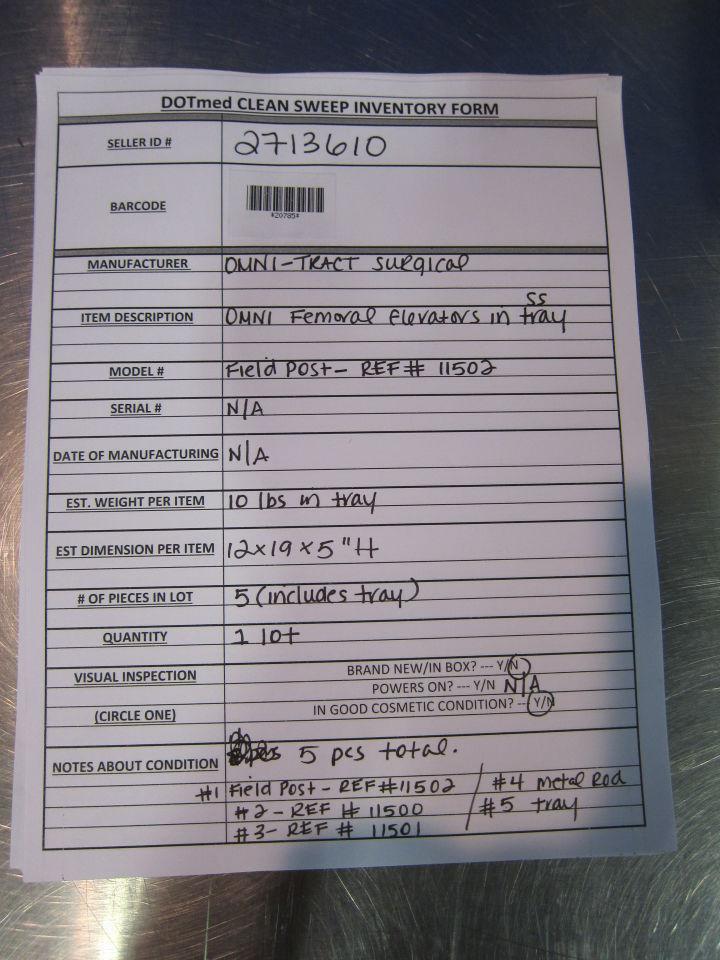 DOTmed CLEAN SWEEP INVENTORY FORM
SELLER ID # 2713610
BARCODE *20785*
MANUFACTURER OMNI-TRACT SURgical
ss
ITEM DESCRIPTION OMNI Femoral Elevators in tray
MODEL # Field Post - REF# 11502
SERIAL # N/A
DATE OF MANUFACTURING N/A
EST. WEIGHT PER ITEM 10 lbs in tray
EST DIMENSION PER ITEM 12x19x5"H
# OF PIECES IN LOT 5 (includes tray)
QUANTITY 1 lot
VISUAL INSPECTION BRAND NEW/IN BOX? --- Y/N
POWERS ON? --- Y/N N/A
(CIRCLE ONE) IN GOOD COSMETIC CONDITION? --- Y/N
NOTES ABOUT CONDITION 5 pcs total.
#1 Field Post - REF#11502 / #4 Metal Rod
#2 - REF # 11500 / #5 tray
#3- REF # 11501